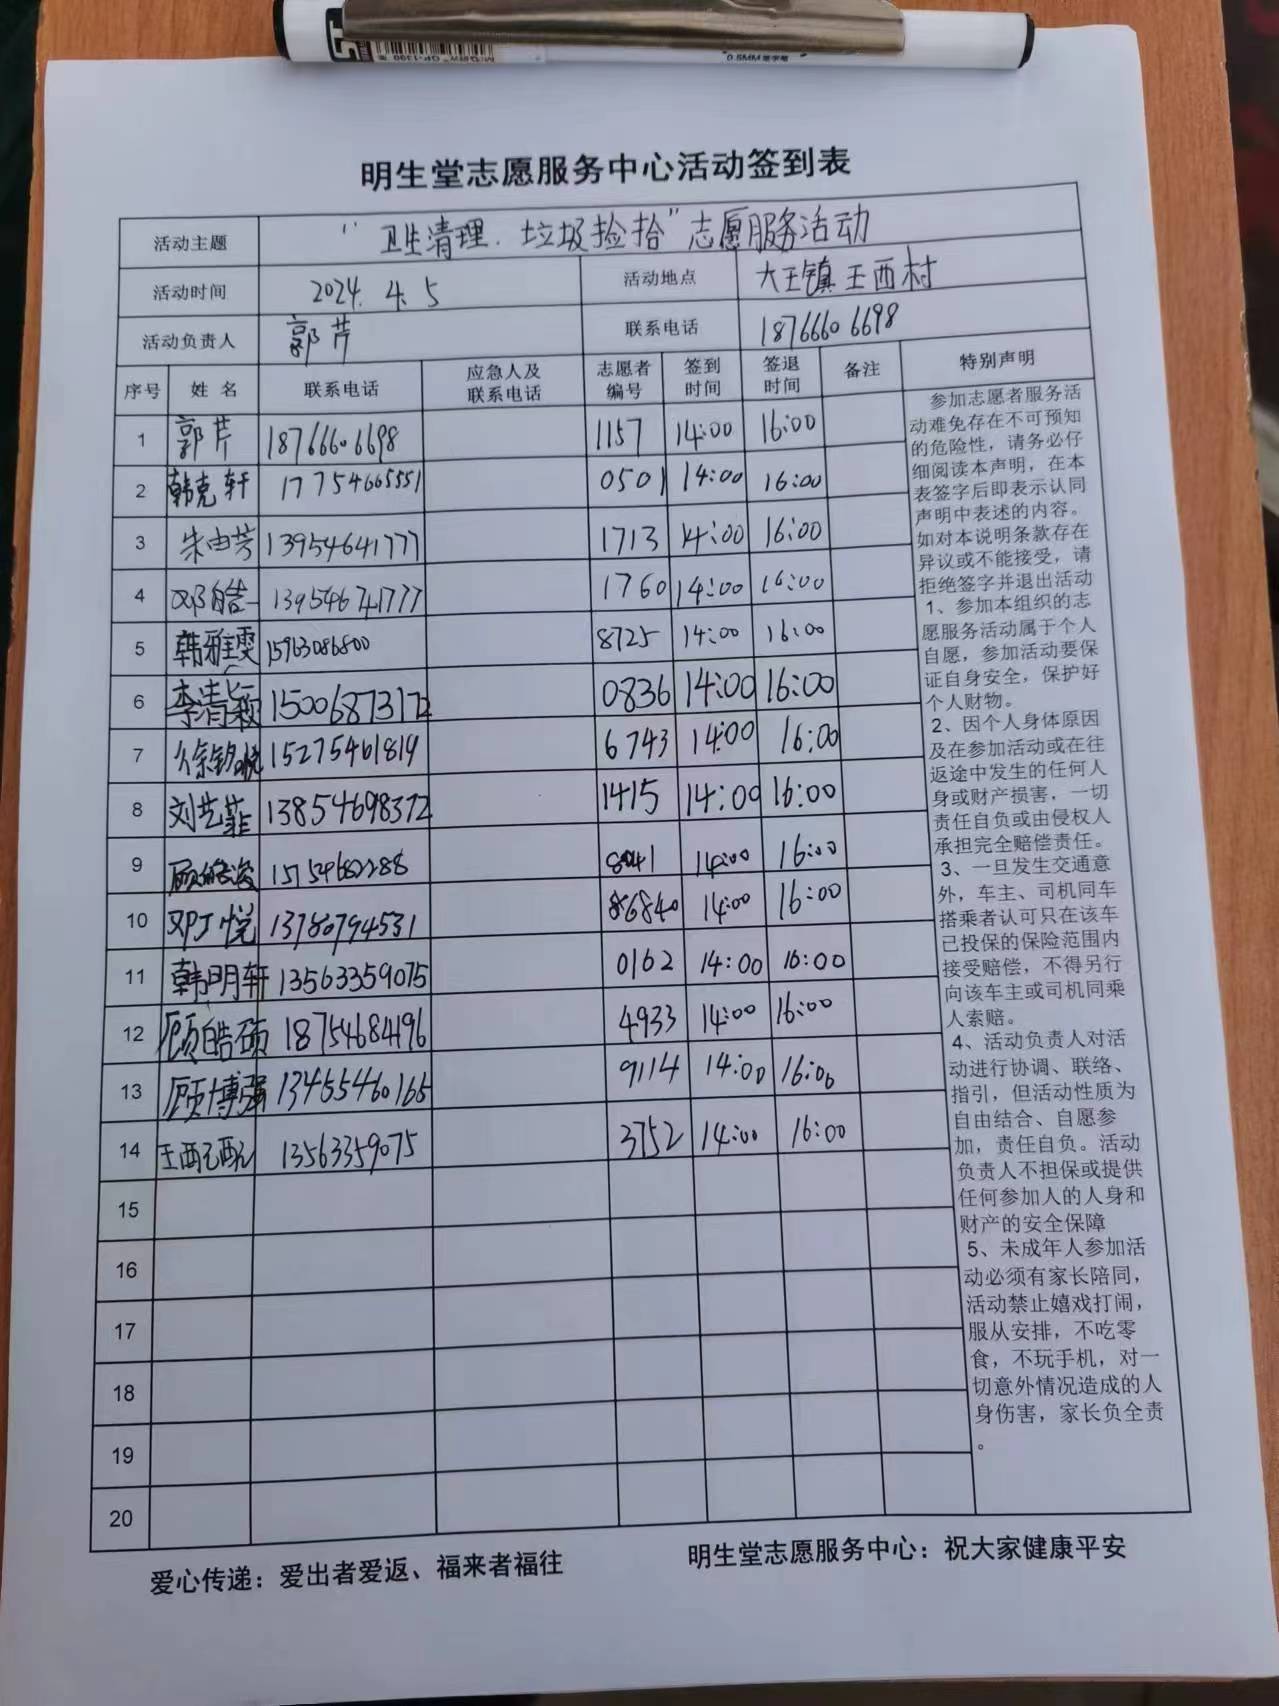 明生堂志愿服务中心活动签到表
活动主题 “卫生清理、垃圾捡拾”志愿服务活动
活动时间 2024.4.5 活动地点 大王镇王西村
活动负责人 郭芹 联系电话 18766606698
序号 姓名 联系电话 应急人及联系电话 志愿者编号 签到时间 签退时间 备注 特别声明
1 郭芹 18766606698 1157 14:00 16:00
2 韩克轩 17754665551 0501 14:00 16:00
3 朱由芳 13954641777 1713 14:00 16:00
4 邓皓一 13954641777 1760 14:00 16:00
5 韩雅雯 15963086800 8725 14:00 16:00
6 李清颖 15006873172 0836 14:00 16:00
7 徐钧悦 15275461819 6743 14:00 16:00
8 刘艺菲 13854698372 1415 14:00 16:00
9 顾皓 15754682288 8041 14:00 16:00
10 邓 悦 13780794531 14:00 16:00
11 韩明轩 13563359075 0162 14:00 16:00
12 顾皓硕 18754684196 4933 14:00 16:00
13 顾博强 13455460165 9114 14:00 16:00
14 王 13563359075 3752 14:00 16:00
15
16
17
18
19
20
参加志愿者服务活
动难免存在不可预知
的危险性，请务必仔
细阅读本声明，在本
表签字后即表示认同
声明中表述的内容。
如对本说明条款存在
异议或不能接受，请
拒绝签字并退出活动
1、参加本组织的志
愿服务活动属于个人
自愿，参加活动要保
证自身安全，保护好
个人财物。
2、因个人身体原因
及在参加活动或在往
返途中发生的任何人
身或财产损害，一切
责任自负或由侵权人
承担完全赔偿责任。
3、一旦发生交通意
外，车主、司机同车
搭乘者认可只在该车
已投保的保险范围内
接受赔偿，不得另行
向该车主或司机同乘
人索赔。
4、活动负责人对活
动进行协调、联络、
指引，但活动性质为
自由结合、自愿参
加，责任自负。活动
负责人不担保或提供
任何参加人的人身和
财产的安全保障
5、未成年人参加活
动必须有家长陪同，
活动禁止嬉戏打闹，
服从安排，不吃零
食，不玩手机，对一
切意外情况造成的人
身伤害，家长负全责
。
爱心传递：爱出者爱返、福来者福往 明生堂志愿服务中心：祝大家健康平安